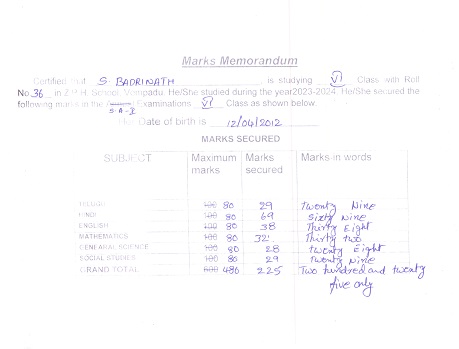 Marks Memorandum
Certified that S. BADRINATH is studying VI Class with Roll
No 36 in Z.P.H. School, He/She studied during the year 2023-2024. He/She secured the
following marks in the Examinations VI Class as shown below.
S.A-I
Date of birth is 12/04/2012
MARKS SECURED
SUBJECT Maximum marks Marks secured Marks in words
TELUGU 100 80 29 Twenty Nine
HINDI 100 80 69 Sixty Nine
ENGLISH 100 80 38 Thirty Eight
MATHEMATICS 100 80 32 Thirty two
GENERAL SCIENCE 100 80 28 twenty Eight
SOCIAL STUDIES 100 80 29 Twenty Nine
GRAND TOTAL 600 480 225 Two hundred and twenty
five only